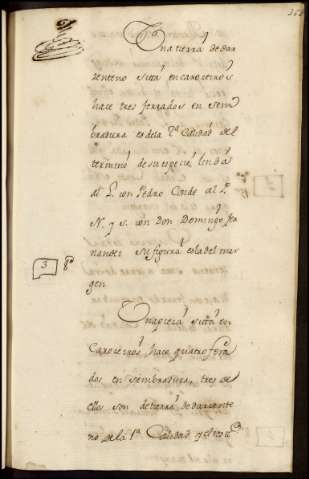 Una tierra de dar
zenteno sitta en caroceiros
hace tres ferrados en sem
bradura es dela 1ª Calidad del
termino de su especie linda
al L. con Pedro Cordo al P.
N. y S. con Don Domingo fer
nandes su figura es la del mar
gen
3
Una pieza sitta en
Caroceiros hace quatro ferra
dos en sembradura, tres de
ellos son de tierra de dar zente
no de la 1ª Calidad y el rest